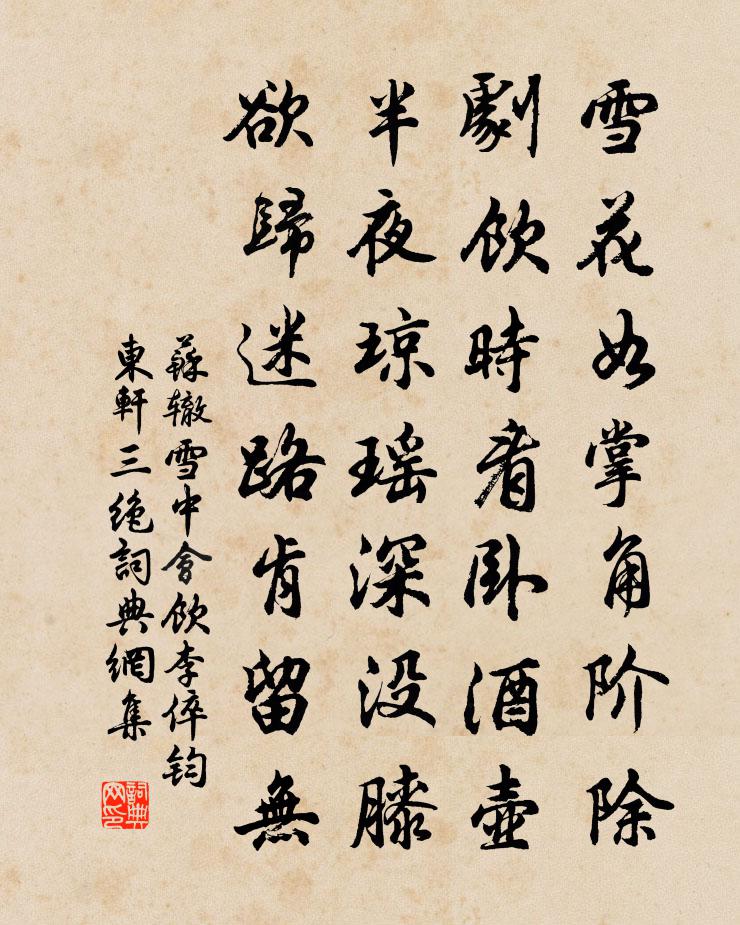 雪花如掌角阶除
劇飲時看卧酒壺
半夜琼瑶深没膝
欲歸迷路肯留無
蘇辙雪中會飲李倅钧
東軒三絶詞典網集
詞典网印